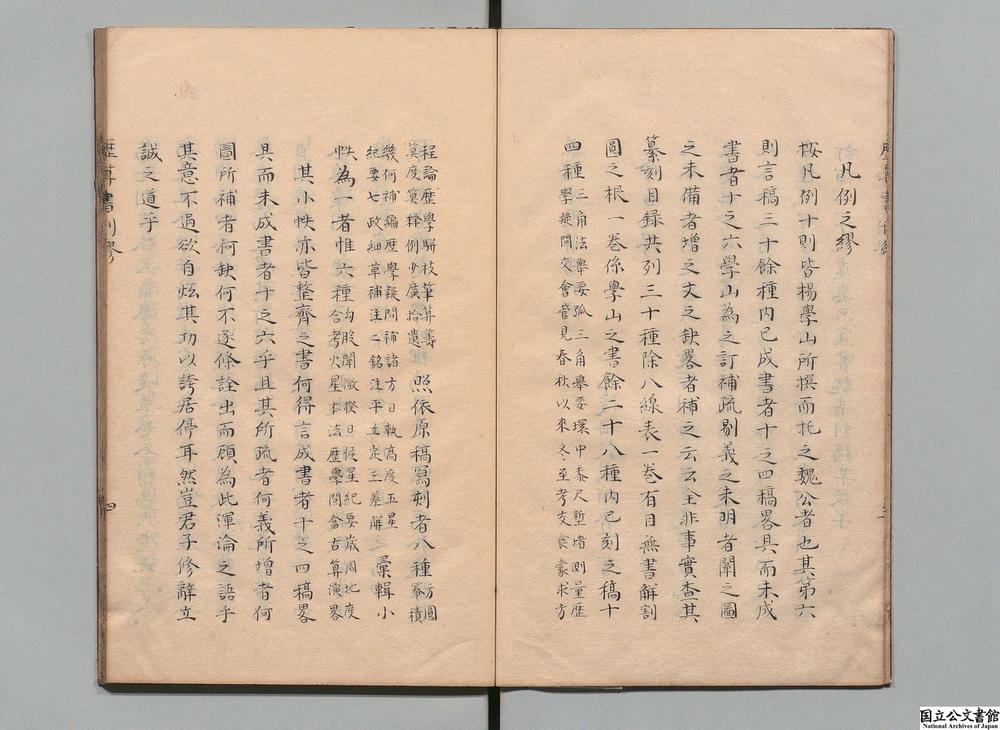 凡例之繆
按凡例十則皆楊學山所撰而托之魏公者也其第六
則言稿三十餘種内已成書者十之四稿畧具而未成
書者十之六學山為之訂補疏剔義之未明者闡之圖
之未備者增之文之缺畧者補之云云全非事實查其
纂刻目録共列三十種除八線表一巻有目無書解割
圜之根一巻係學山之書餘二十八種内已刻之稿十
四種三角法舉要弧三角舉要環中黍尺塹堵測量歴
學疑問交會管見春秋以來冬至考交食蒙求方
程論歴學駢枝筆算籌
算度算釋例少廣拾遺照依原稿寫刺者八種方圓
冪積
幾何補編歴學疑問補諸方日軌高度五星
紀要七政細草補注二銘注平立定三差解彙輯小
帙為一者惟六種勾股闡微揆日候星紀要嵗周地度
合考火星本法歴學問答古算演畧
其小帙亦皆整齊之書何得言成書者十之四稿畧
具而未成書者十之六乎且其所疏者何義所增者何
圖所補者何缺何不逐條詮出而顧為此渾論之語乎
其意不過欲自炫其功以誇居停耳然豈君子修辭立
誠之道乎
四
国立公文書館
National Archives of Japan